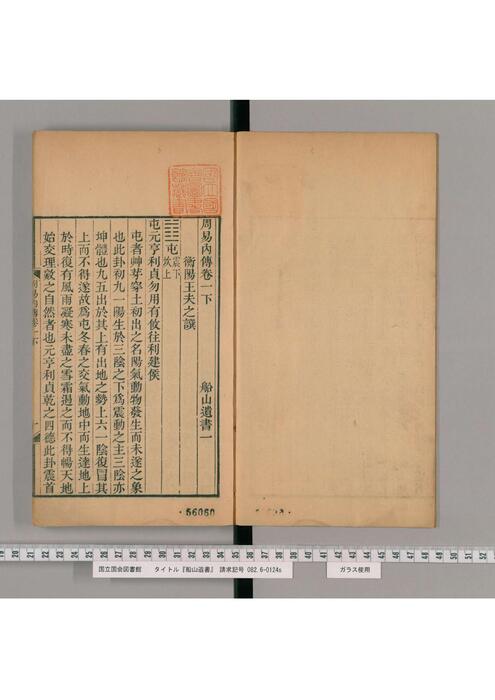 周易內傳卷一下
船山遺書一
衡陽王夫之譔
䷂屯震下坎上
屯元亨利貞勿用有攸往利建侯
屯者艸芽穿土初出之名陽氣動物發生而未遂之象
也此卦初九一陽生於三陰之下爲震動之主三陰亦
坤體也九五出於其上有出地之勢上六一陰復冒其
上而不得遂故爲屯冬春之交氣動地中而生達地上
於時復有風雨凝寒未盡之雪霜遏之而不得暢天地
始交理數之自然者也元亨利貞乾之四德此卦震首
周易內傳卷一下
一
56060
国立国会図書館 タイトル『船山遺書』 請求記号 082.6-0124s
ガラス使用
19 20 21 22 23 24 25 26 27 28 29 30 31 32 33 34 35 36 37 38 39 40 41 42 43 44 45 46 47 48 49 50 51 52